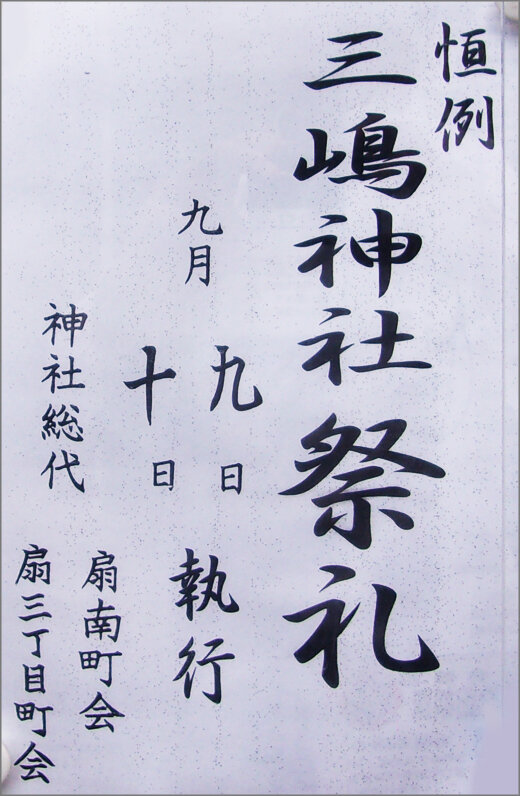 恒例
三嶋神社祭礼
九月
九日
十日
執行
神社総代
扇南町会
扇三丁目町会